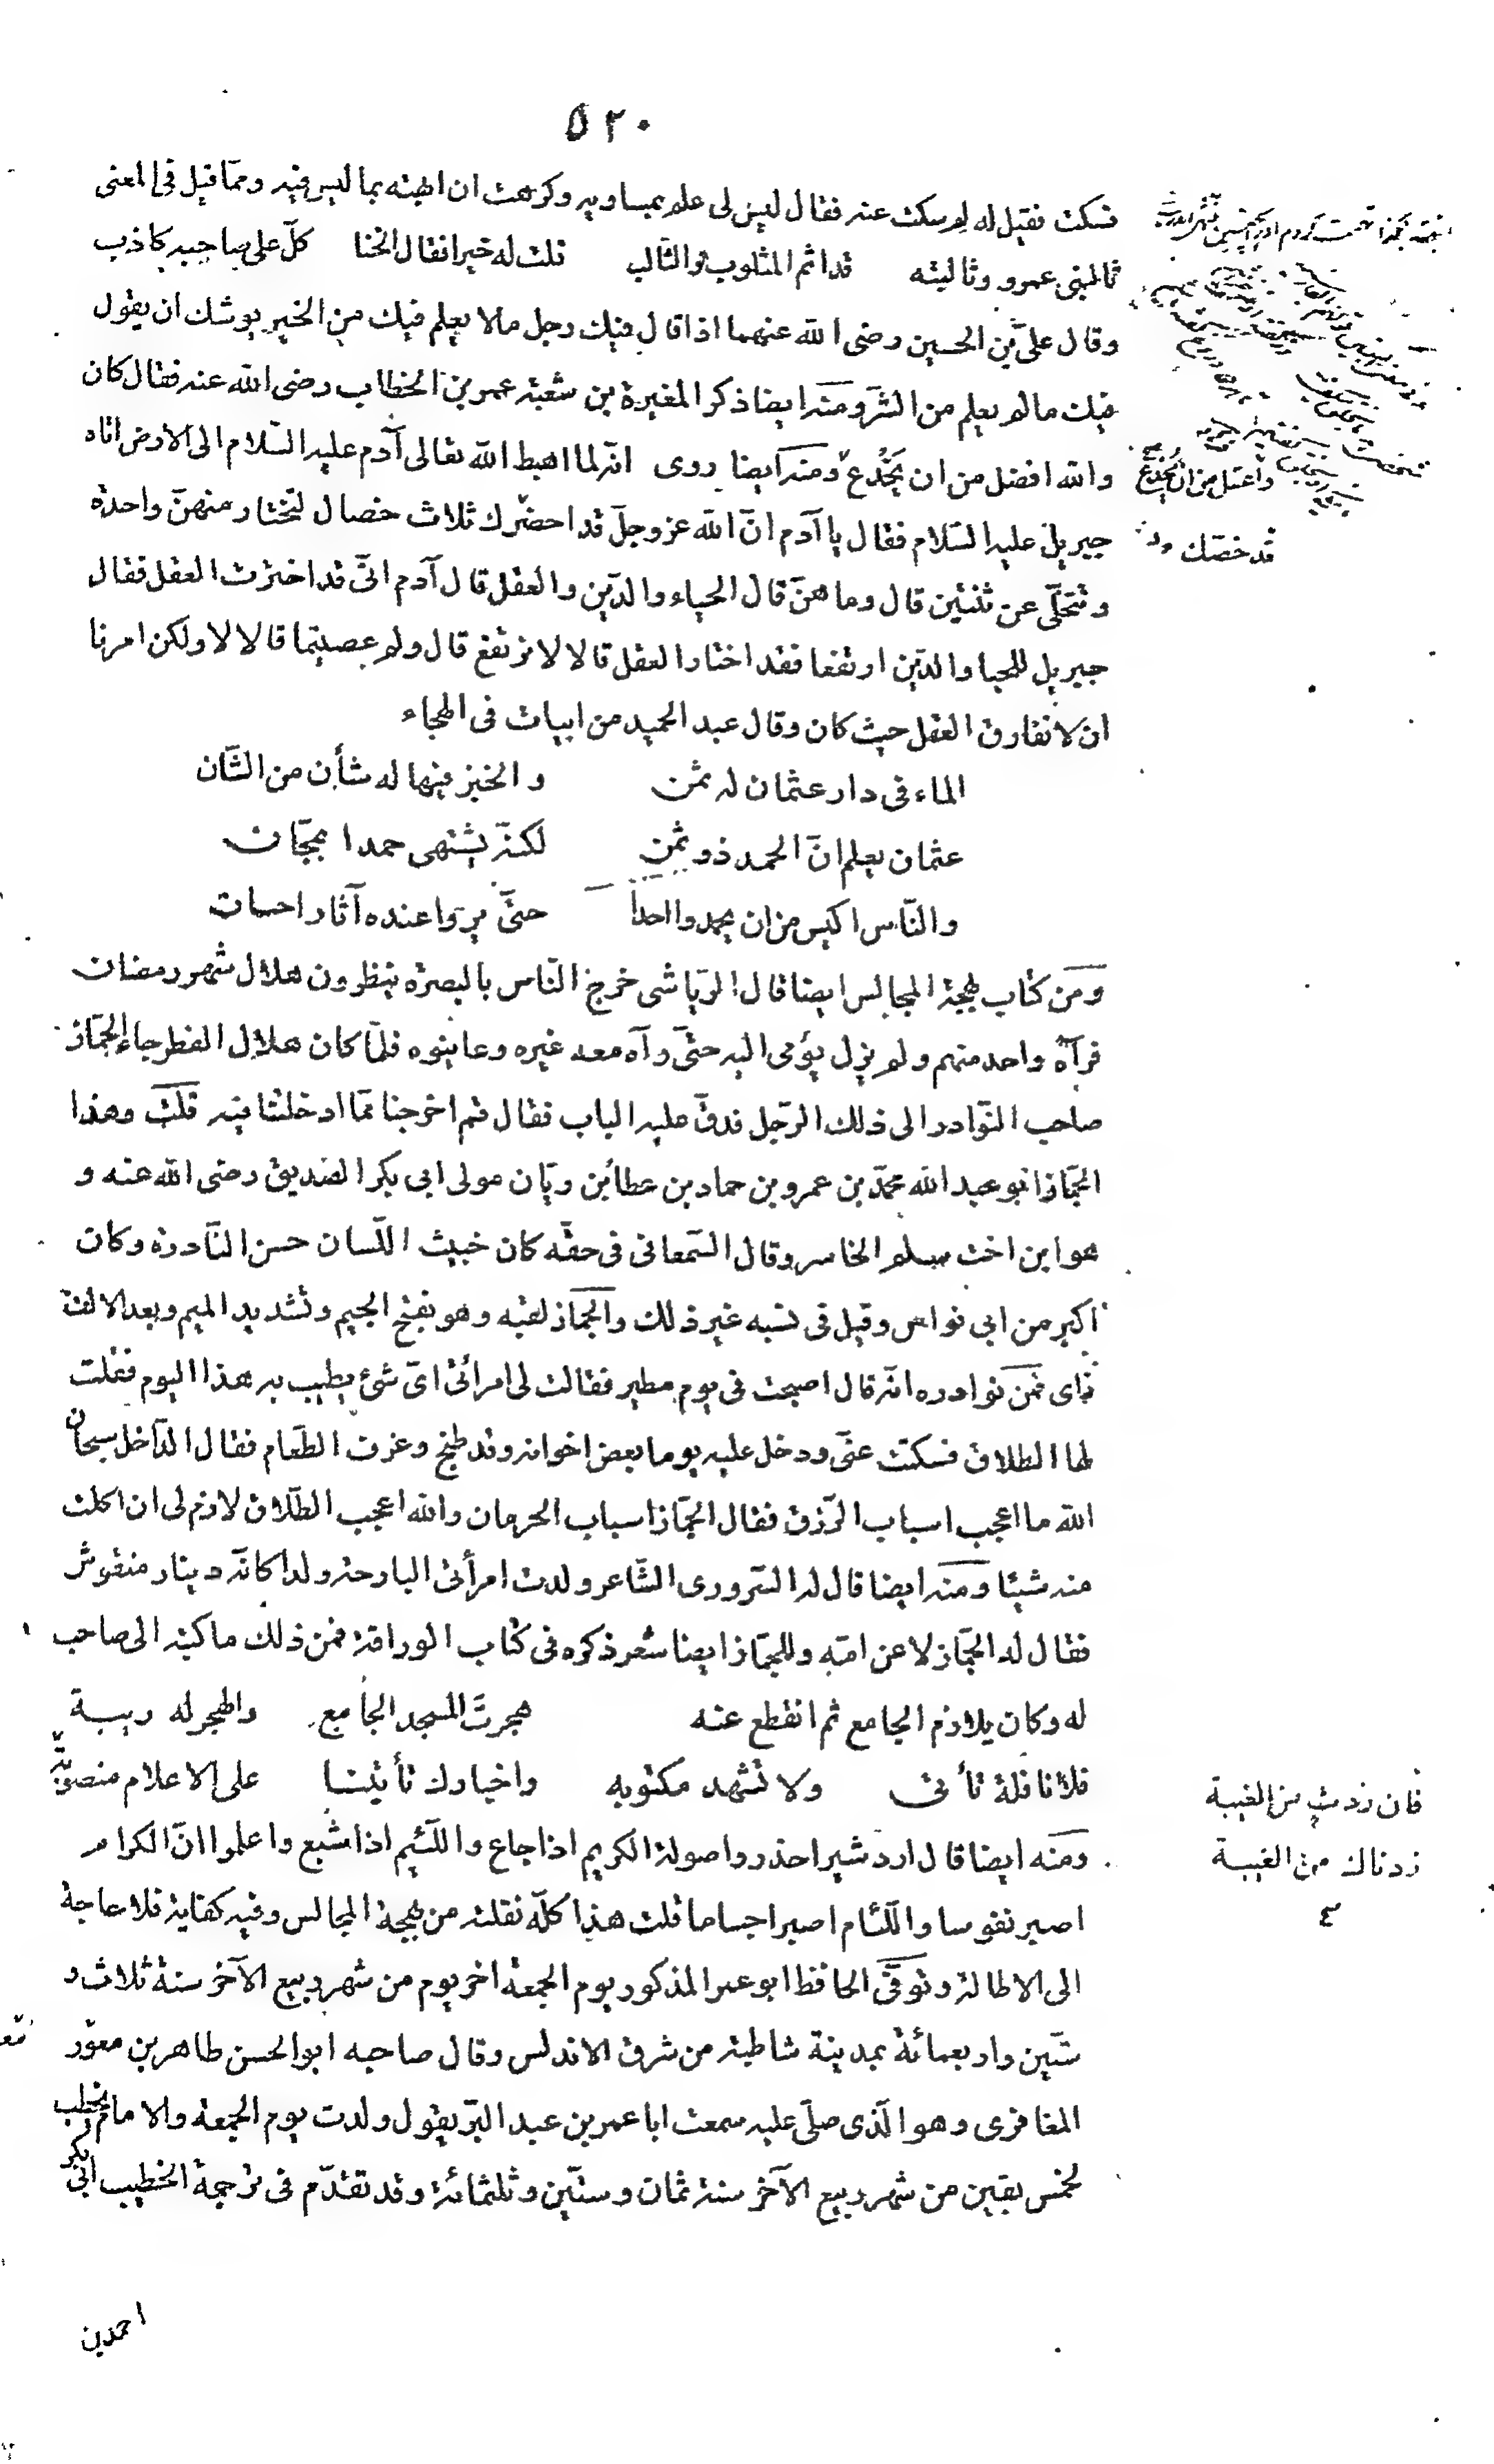 ٥٢٠
فسكت فقيل له لم سكت عنه فقال ليس لى علم بمساويه وكرهت ان ابهته بما ليس فيه ومما قيل فى المعنى
ثالبنى عمرو وثالبته قد اثم المثلوب والثالب قلت له خيرا فقال الخنا كلّ على صاحبه كاذب
وقال علىّ بن الحسين رضى الله عنهما اذا قال فيك رجل ما لا يعلم فيك من الخير يوشك ان يقول
فيك ما لم يعلم من الشرّ ومنه ايضا ذكر المغيرة بن شعبة عمر بن الخطاب رضى الله عنه فقال كان
والله افضل من ان يَخْدع ومنه ايضا روى انه لما اهبط الله تعالى آدم عليه السّلام الى الارض اتاه
جبريل عليه السّلام فقال يا آدم انّ الله عز وجلّ قد احضرك ثلاث خصال لتختار منهنّ واحدة
وتتخلّى عن ثنتين قال وما هنّ قال الحياء والدّين والعقل قال آدم انّى قد اخترت العقل فقال
جبريل للحيا والدّين ارتفعا فقد اختار العقل قالا لا نرتفع قال ولم عصيتما قالا لا ولكن امرنا
ان لا نفارق العقل حيث كان وقال عبد الحميد من ابيات فى الهجاء
الماء فى دار عثمان له ثمن والخبز فيها له شأن من الشّان
عثمان يعلم انّ الحمد ذو ثمن لكنّه يشتهى حمدا بمجّان
والنّاس اكيس من ان يحمدوا احدا حتّى يروا عنده آثار احسان
ومن كتاب بهجة المجالس ايضا قال الرياشى خرج النّاس بالبصرة ينظرون هلال شهر رمضان
فرآه واحد منهم ولم يزل يؤمى اليه حتّى رآه معه غيره وعاينوه فلمّا كان هلال الفطر جاء الجمّاز
صاحب النّوادر الى ذلك الرّجل فدقّ عليه الباب فقال قم اخرجنا ممّا ادخلتنا فيه قلت وهذا
الجمّاز ابو عبد الله محمّد بن عمرو بن حماد بن عطا بن ريّان مولى ابى بكر الصّديق رضى الله عنه و
هو ابن اخت سلم الخاسر وقال السّمعانى فى حقّه كان خبيث اللّسان حسن النّادرة وكان
اكبر من ابى نواس وقيل فى نسبه غير ذلك والجمّاز لقبه وهو بفتح الجيم وتشديد الميم وبعد الالف
زاى فمن نوادره انّه قال اصبحت فى يوم مطير فقالت لى امرأتى اىّ شئ يطيب به هذا اليوم فقلت
لها الطلاق فسكتت عنّى ودخل عليه يوما بعض اخوانه وقد طبخ وغرف الطّعام فقال الدّاخل سبحان
الله ما اعجب اسباب الرّزق فقال الجمّاز اسباب الحرمان والله اعجب الطّلاق لازم لى ان اكلت
منه شيئا ومنه ايضا قال له السّرورى الشّاعر ولدت امرأتى البارحة ولدا كانّه دينار منقوش
فقال له الجمّاز لاعن امّه وللجمّاز ايضا شعر ذكره فى كتاب الوراقة فمن ذلك ما كتبه الى صاحب
له وكان يلازم الجامع ثم انقطع عنه هجرت المسجد الجامع والهجر له ريبة
فلا نافلة تأتى ولا تشهد مكتوبه واخبارك تأتينا على الاعلام منصوبة
ومنه ايضا قال اردشير احذروا صولة الكريم اذا جاع واللّئيم اذا شبع واعلموا انّ الكرام
اصبر نفوسا واللّئام اصبر اجساما قلت هذا كلّه نقلته من بهجة المجالس وفيه كفاية فلا حاجة
الى الاطالة وتوفّى الحافظ ابو عمر المذكور يوم الجمعة اخر يوم من شهر ربيع الآخر سنة ثلاث و
ستّين واربعمائة بمدينة شاطبة من شرق الاندلس وقال صاحبه ابو الحسن طاهر بن معوّز
المغافرى وهو الّذى صلّى عليه سمعت ابا عمر بن عبد البرّ يقول ولدت يوم الجمعة والامام يخطب
لخمس بقين من شهر ربيع الآخر سنة ثمان وستّين وثلثمائة وقد تقدّم فى ترجمة الخطيب ابى بكر
احمد بن
واعقل من ان يُخدع
قد خصّك
فان زدت من الغيبة
زدناك من الغيبة